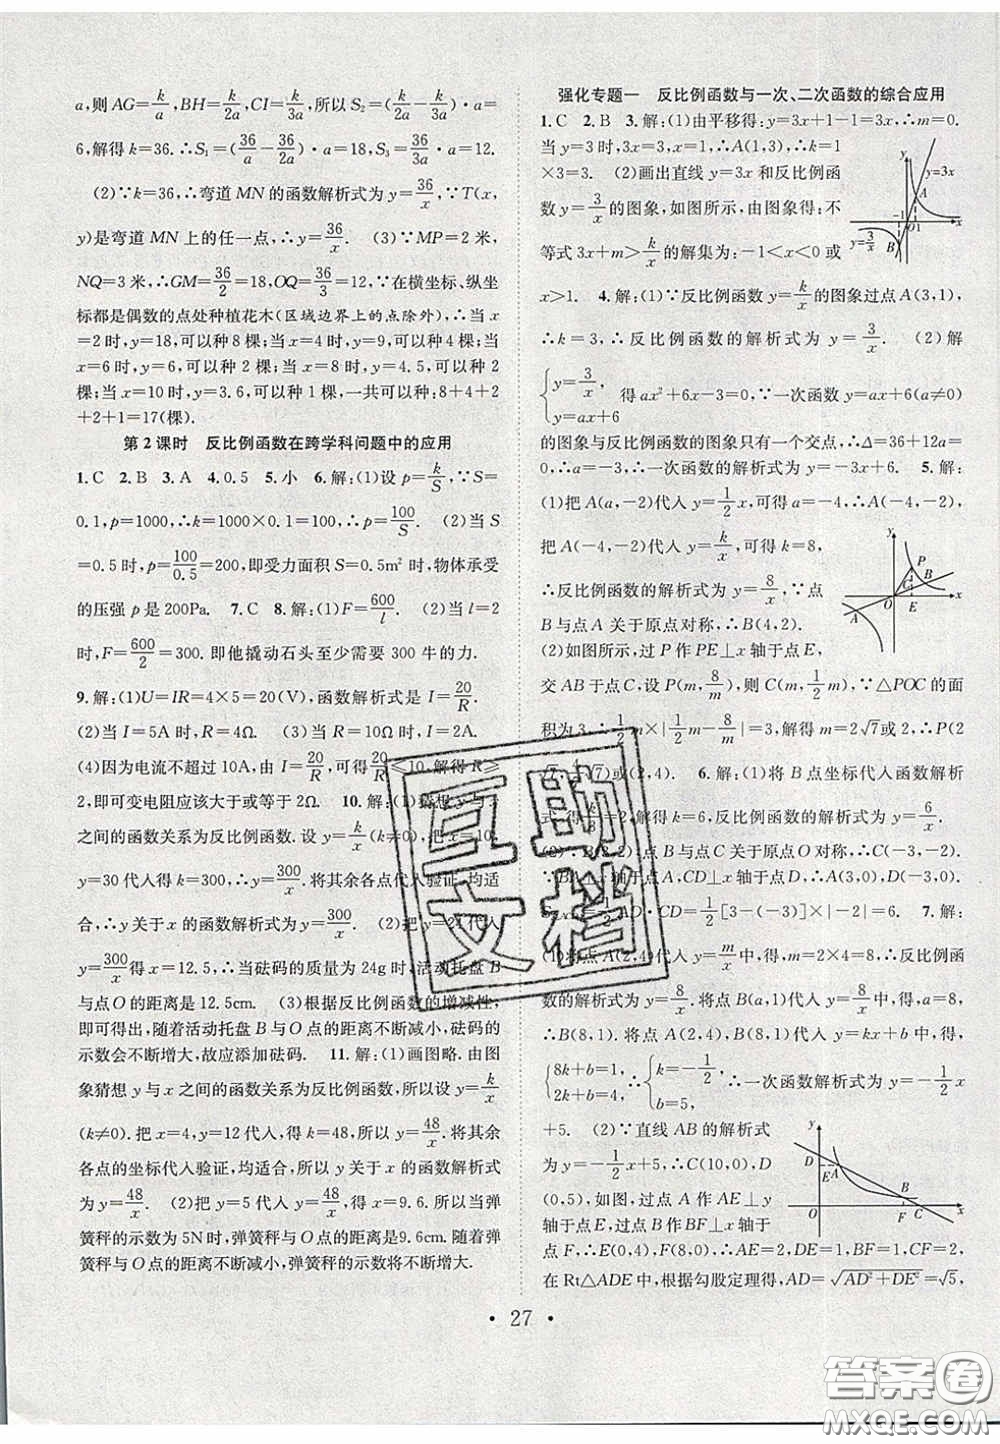 a,则AG=k/a,BH=k/2a,CI=k/3a,所以S₂=(k/2a-k/3a)·a=
6,解得k=36.∴S₁=(36/a-36/2a)·a=18,S₃=36/3a·a=12.
(2)∵k=36,∴弯道MN的函数解析式为y=36/x,∵T(x,
y)是弯道MN上的任一点,∴y=36/x. (3)∵MP=2米,
NQ=3米,∴GM=36/2=18,OQ=36/3=12,∵在横坐标、纵坐
标都是偶数的点处种植花木(区域边界上的点除外),∴当x
=2时,y=18,可以种8棵;当x=4时,y=9,可以种4棵;当
x=6时,y=6,可以种2棵;当x=8时,y=4.5,可以种2
棵;当x=10时,y=3.6,可以种1棵,一共可以种:8+4+
2+2+1=17(棵).
第2课时 反比例函数在跨学科问题中的应用
1.C 2.B 3.A 4.0.5 5.小 6.解:(1)设p=k/S,∵S=
0.1,p=1000,∴k=1000×0.1=100,∴p=100/S. (2)当S
=0.5时,p=100/0.5=200,即受力面积S=0.5m²时,物体承受
的压强p是200Pa. 7.C 8.解:(1)F=600/l. (2)当l=2
时,F=600/2=300.即他撬动石头至少需要300牛的力.
9.解:(1)U=IR=4×5=20(V),函数解析式是I=20/R.
(2)当I=5A时,R=4Ω. (3)当R=10Ω时,I=2A.
(4)因为电流不超过10A,由I=20/R,可得20/R≤10,解得R≥
2,即可变电阻应该大于或等于2Ω. 10.解:(1)猜想y与x
之间的函数关系为反比例函数.设y=k/x(k≠0),把x=10,
y=30代入得k=300,∴y=300/x.将其余各点代入验证,均适
合,∴y关于x的函数解析式为y=300/x. (2)把y=24代入
y=300/x得x=12.5,∴当砝码的质量为24g时,活动托盘B
与点O的距离是12.5cm. (3)根据反比例函数的增减性,
即可得出,随着活动托盘B与O点的距离不断减小,砝码的
示数会不断增大,故应添加砝码. 11.解:(1)画图略.由图
象猜想y与x之间的函数关系为反比例函数,所以设y=k/x
(k≠0).把x=4,y=12代入,得k=48,所以y=48/x.将其余
各点的坐标代入验证,均适合,所以y关于x的函数解析式
为y=48/x. (2)把y=5代入y=48/x,得x=9.6.所以当弹
簧秤的示数为5N时,弹簧秤与O点的距离是9.6cm.随着
弹簧秤与O点的距离不断减小,弹簧秤的示数将不断增大.
强化专题一 反比例函数与一次、二次函数的综合应用
1.C 2.B 3.解:(1)由平移得:y=3x+1-1=3x,∴m=0.
当y=3时,3x=3,x=1,∴A(1,3),∴k=1
×3=3. (2)画出直线y=3x和反比例函
数y=3/x的图象,如图所示,由图象得:不
等式3x+m>k/x的解集为:-1<x<0或
x>1. 4.解:(1)∵反比例函数y=k/x的图象过点A(3,1),
∴k=3.∴反比例函数的解析式为y=3/x. (2)解
{y=3/x, y=ax+6 得ax²+6x-3=0,∵一次函数y=ax+6(a≠0)
的图象与反比例函数的图象只有一个交点,∴Δ=36+12a=
0,∴a=-3,∴一次函数的解析式为y=-3x+6. 5.解:
(1)把A(a,-2)代入y=1/2x,可得a=-4,∴A(-4,-2),
把A(-4,-2)代入y=k/x,可得k=8,
∴反比例函数的解析式为y=8/x,∵点
B与点A关于原点对称,∴B(4,2).
(2)如图所示,过P作PE⊥x轴于点E,
交AB于点C,设P(m,8/m),则C(m,1/2m),∵△POC的面
积为3,∴1/2m×|1/2m-8/m|=3,解得m=2√7或2,∴P(2
或(2,4). 6.解:(1)将B点坐标代入函数解析
式,得k/3=2,解得k=6,反比例函数的解析式为y=6/x.
B(3,2),点B与点C关于原点O对称,∴C(-3,-2).
点A,CD⊥x轴于点D,∴D(-3,0).
AD·CD=1/2[3-(-3)]×|-2|=6. 7.解:
(1)将点A(2,4)代入y=m/x中,得m=8,∴反比例函
数的解析式为y=8/x.将点B(n,1)代入y=8/x中,得,n=8,
∴B(8,1).将点A(2,4),B(8,1)代入y=kx+b中,得,
{8k+b=1, 2k+b=4, ∴{k=-1/2, b=5, ∴一次函数解析式为y=-1/2x
+5. (2)∵直线AB的解析式为
y=-1/2x+5,∴C(10,0),D
(0,5),如图,过点A作AE⊥y
轴于点E,过点B作BF⊥x轴于
点F,∴E(0,4),F(8,0),∴AE=2,DE=1,BF=1,CF=2,
在Rt△ADE中,根据勾股定理得,AD=√AD²+DE²=√5,
· 27 ·
互助
文档
答案圈
MXQE.COM